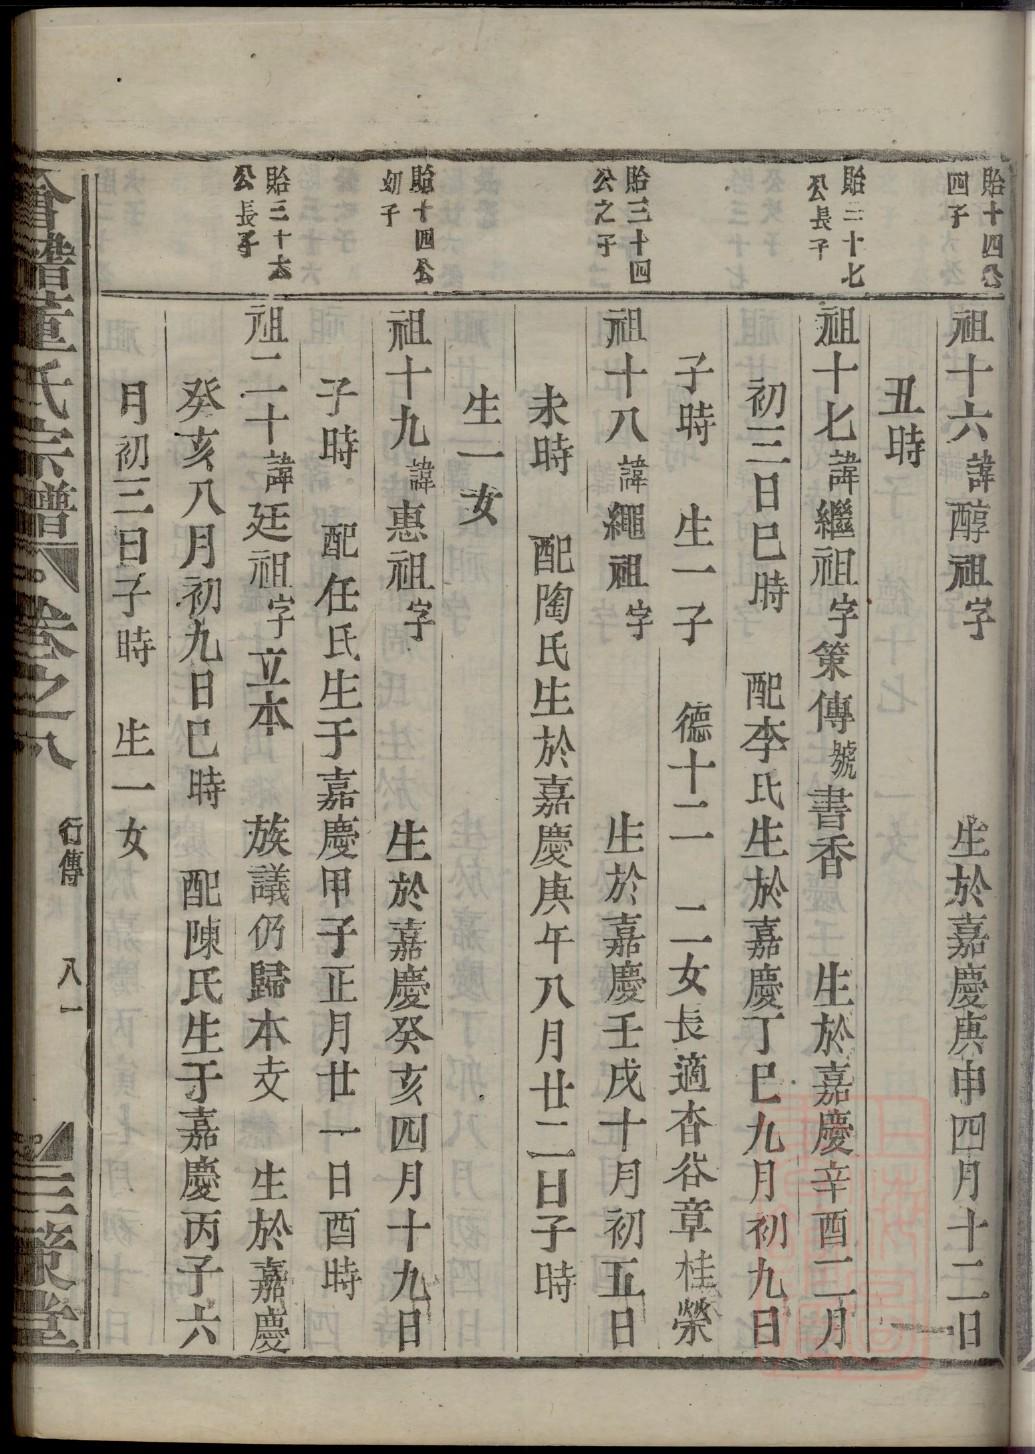 貽十四公
四子
祖十六諱醇祖字　生於嘉慶庚申四月十二日
丑時
貽三十七
公長子
祖十七諱繼祖字策傳號書香　生於嘉慶辛酉二月
初三日巳時　配李氏生於嘉慶丁巳九月初九日
子時　生一子　德十二　二女長適杏谷章桂榮
貽三十四
公之子
祖十八諱繩祖字　生於嘉慶壬戌十月初五日
未時　配陶氏生於嘉慶庚午八月廿二日子時
生一女
貽十四公
幼子
祖十九諱惠祖字　生於嘉慶癸亥四月十九日
子時　配任氏生于嘉慶甲子正月廿一日酉時
貽三十六
公長子
祖二十諱廷祖字立本　族議仍歸本支　生於嘉慶
癸亥八月初九日巳時　配陳氏生于嘉慶丙子六
月初三日子時　生一女
會稽董氏宗譜　卷之八　行傳　八一　三策堂